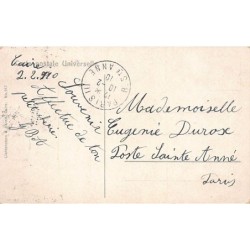 postale Universelle
Caire
2.2.910
Souvenir
Affectueux de ton
petit
PARIS 11
R. Ste ANNE
Mademoiselle
Eugenie Durose
Poste Sainte Anne
Paris